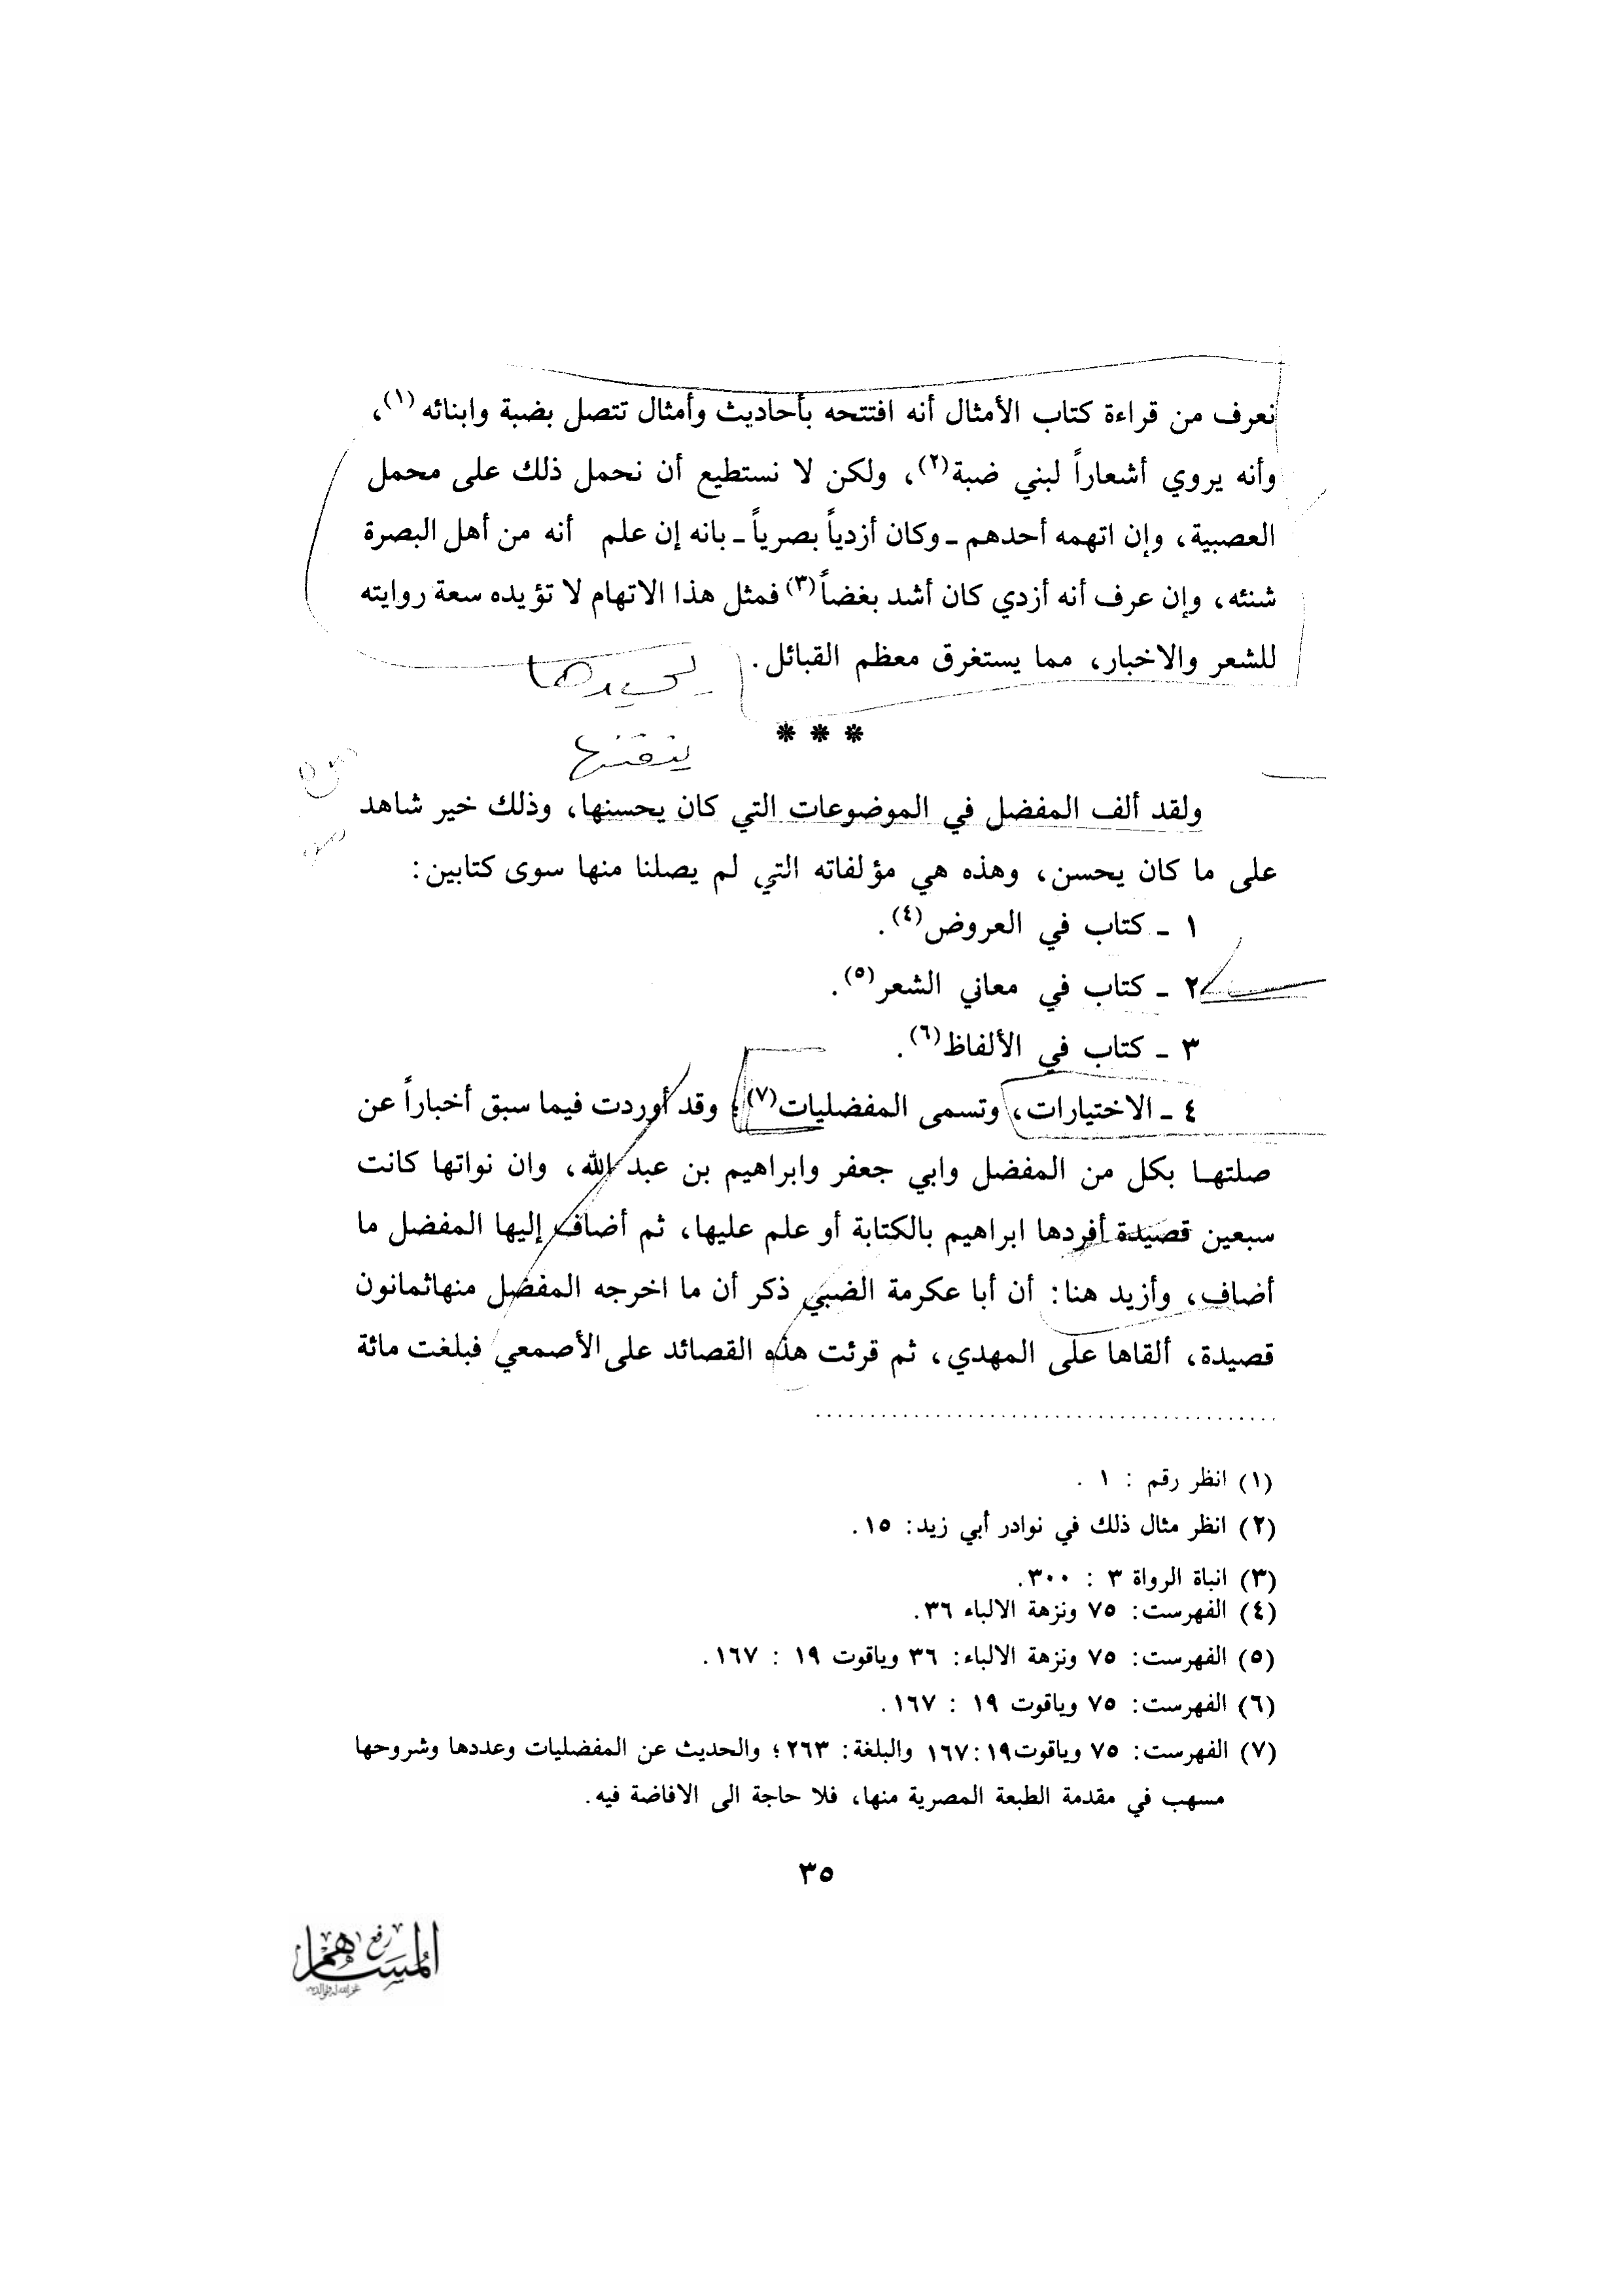 نعرف من قراءة كتاب الأمثال أنه افتتحه بأحاديث وأمثال تتصل بضبة وابنائه (١)،
وأنه يروي أشعاراً لبني ضبة(٢)، ولكن لا نستطيع أن نحمل ذلك على محمل
العصبية، وإن اتهمه أحدهم ـ وكان أزدياً بصرياً ـ بانه إن علم أنه من أهل البصرة
شنئه، وإن عرف أنه أزدي كان أشد بغضاً(٣) فمثل هذا الاتهام لا تؤيده سعة روايته
للشعر والاخبار، مما يستغرق معظم القبائل.
يجيدها
* * *
يتقنها
ولقد ألف المفضل في الموضوعات التي كان يحسنها، وذلك خير شاهد
على ما كان يحسن، وهذه هي مؤلفاته التي لم يصلنا منها سوى كتابين:
١ ـ كتاب في العروض(٤).
٢ ـ كتاب في معاني الشعر(٥).
٣ ـ كتاب في الألفاظ(٦).
٤ ـ الاختيارات، وتسمى المفضليات(٧)؛ وقد أوردت فيما سبق أخباراً عن
صلتها بكل من المفضل وابي جعفر وابراهيم بن عبد الله، وان نواتها كانت
سبعين قصيدة أفردها ابراهيم بالكتابة أو علم عليها، ثم أضاف إليها المفضل ما
أضاف، وأزيد هنا: أن أبا عكرمة الضبي ذكر أن ما اخرجه المفضل منهاثمانون
قصيدة، ألقاها على المهدي، ثم قرئت هذه القصائد على الأصمعي فبلغت مائة
(١) انظر رقم : ١ .
(٢) انظر مثال ذلك في نوادر أبي زيد: ١٥.
(٣) انباة الرواة ٣ : ٣٠٠.
(٤) الفهرست: ٧٥ ونزهة الالباء ٣٦.
(٥) الفهرست: ٧٥ ونزهة الالباء: ٣٦ وياقوت ١٩ : ١٦٧.
(٦) الفهرست: ٧٥ وياقوت ١٩ : ١٦٧.
(٧) الفهرست: ٧٥ وياقوت١٩: ١٦٧ والبلغة: ٢٦٣؛ والحديث عن المفضليات وعددها وشروحها
مسهب في مقدمة الطبعة المصرية منها، فلا حاجة الى الافاضة فيه.
٣٥